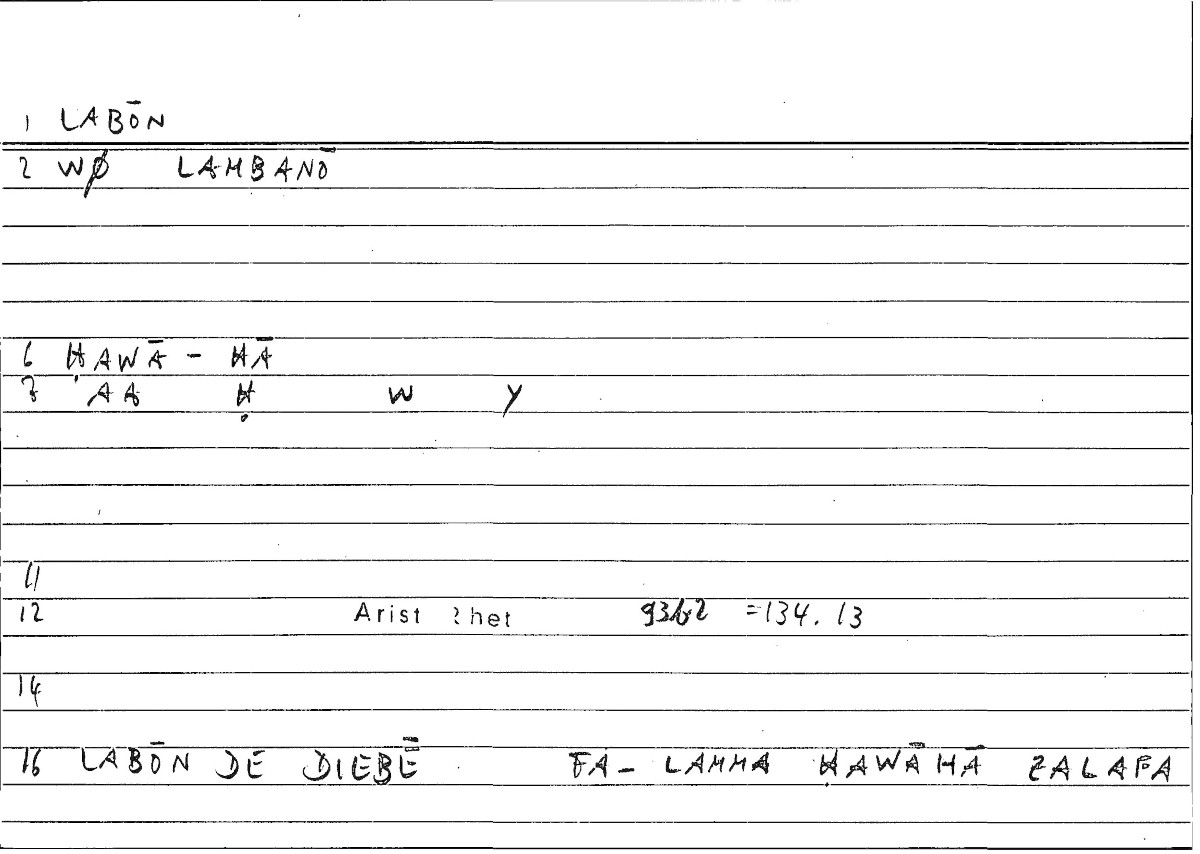 1 LABŌN
2 WØ LAMBANŌ
6 ḤAWĀ - HĀ
7 AA Ḥ W Y
11
12 Arist Rhet 93b2 =134.13
14
16 LABŌN DE DIEBĒ FA- LAMMA ḤAWĀHĀ ZALAFA